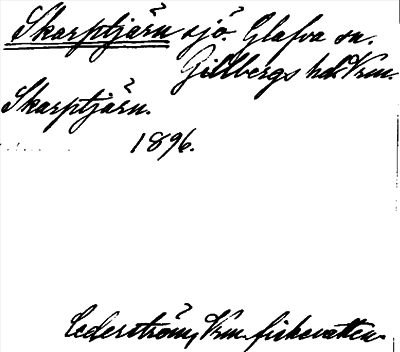 Skarptjärn sjö. Glafva sn.
Gillbergs hd. Vrm.
Skarptjärn.
1896.
Cederström, Vrm. fiskevatten.